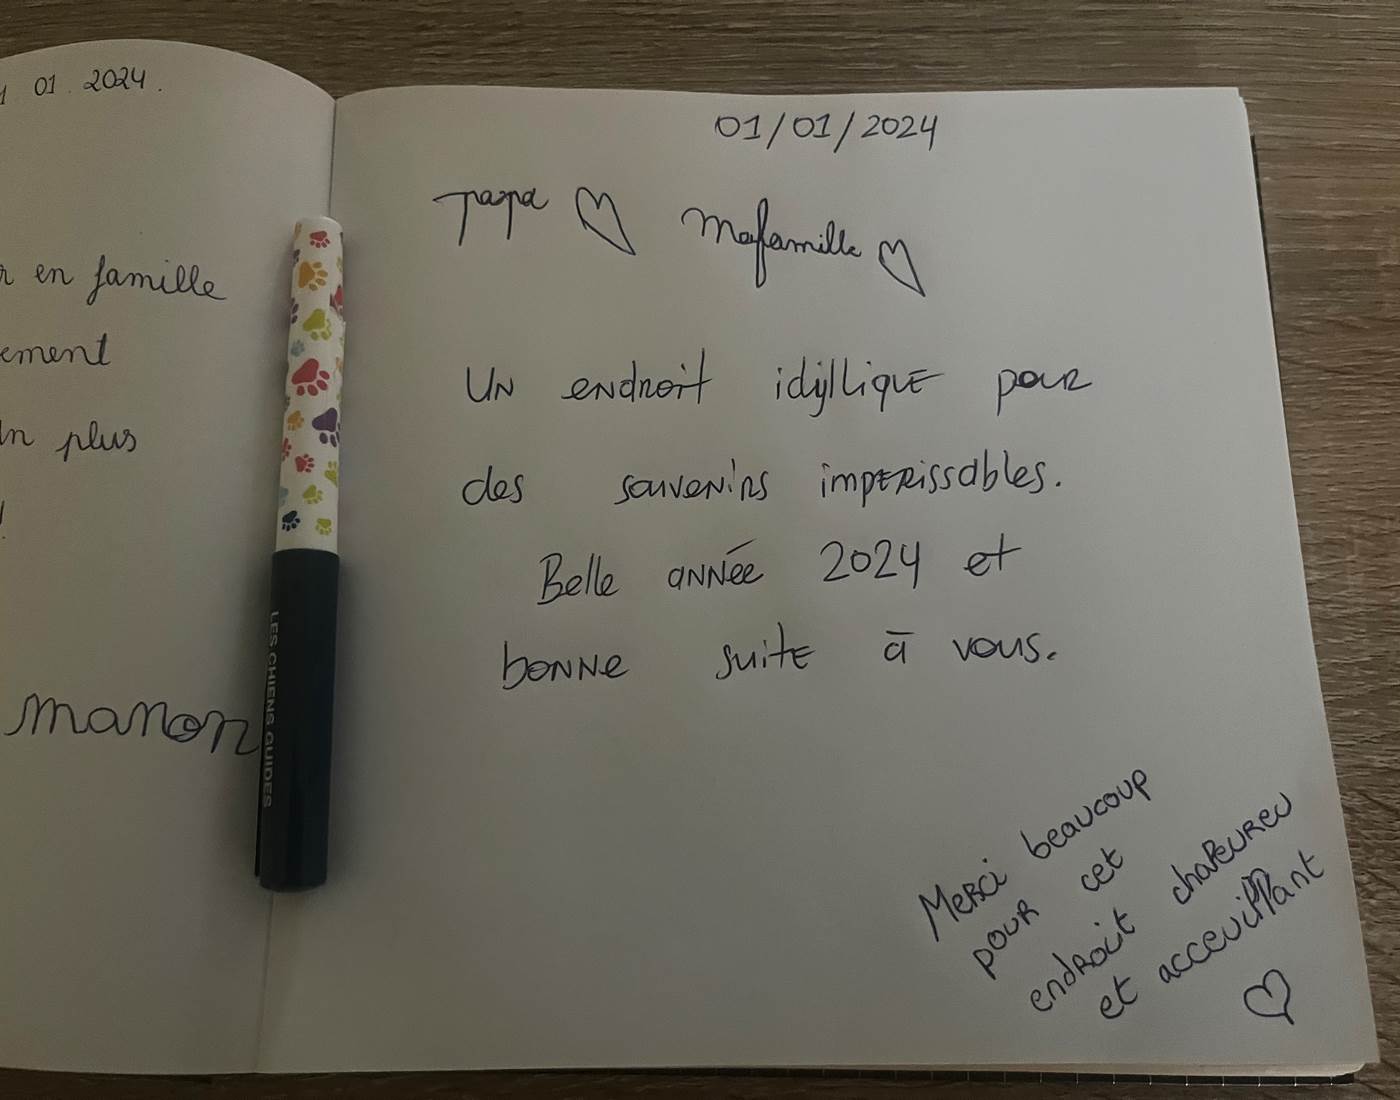 01 2024.
en famille
ement
plus
!
manon
LES CHIENS GUIDES
01/01/2024
papa ♡ Mafamille ♡
UN endroit idyllique pour
des souvenirs imperissables.
Belle année 2024 et
bonne suite à vous.
Merci beaucoup
pour cet
endroit chaleureu
et acceuillant
♡